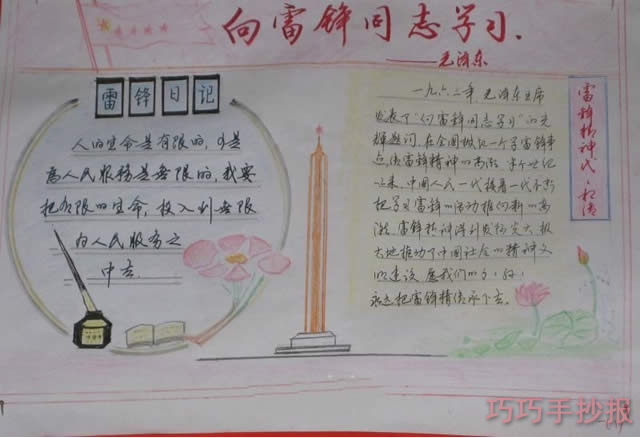 向雷锋同志学习.
——毛泽东
雷锋日记
人的生命是有限的,可是
为人民服务是无限的,我要
把有限的生命,投入到无限
的为人民服务之
中去.
一九六三年毛泽东主席
发表了"向雷锋同志学习"的光
辉题词,在全国掀起一个学雷锋事
迹,传雷锋精神的高潮
以来,中国人民一代接着一代不断
把学习雷锋的活动推向新的高
潮,雷锋精神得到发扬光大,极
大地推动了中国社会的精神文
明建设,愿我们
永远把雷锋精神传承下去.
雷锋精神代代相传
巧巧手抄报